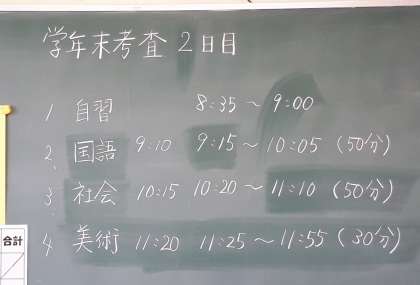 学年末考査 2日目
1 自習 8:35〜9:00
2. 国語 9:10 9:15〜10:05 (50分)
3. 社会 10:15 10:20〜11:10 (50分)
4. 美術 11:20 11:25〜11:55 (30分)
合計